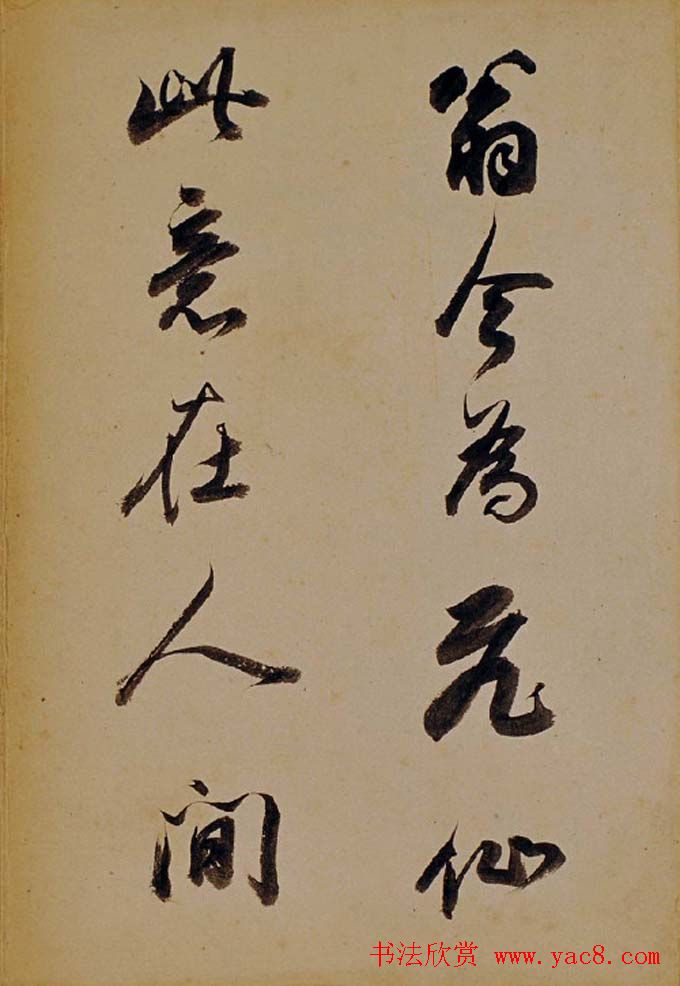 翁今为飞仙
此意在人间
书法欣赏 www.yac8.com